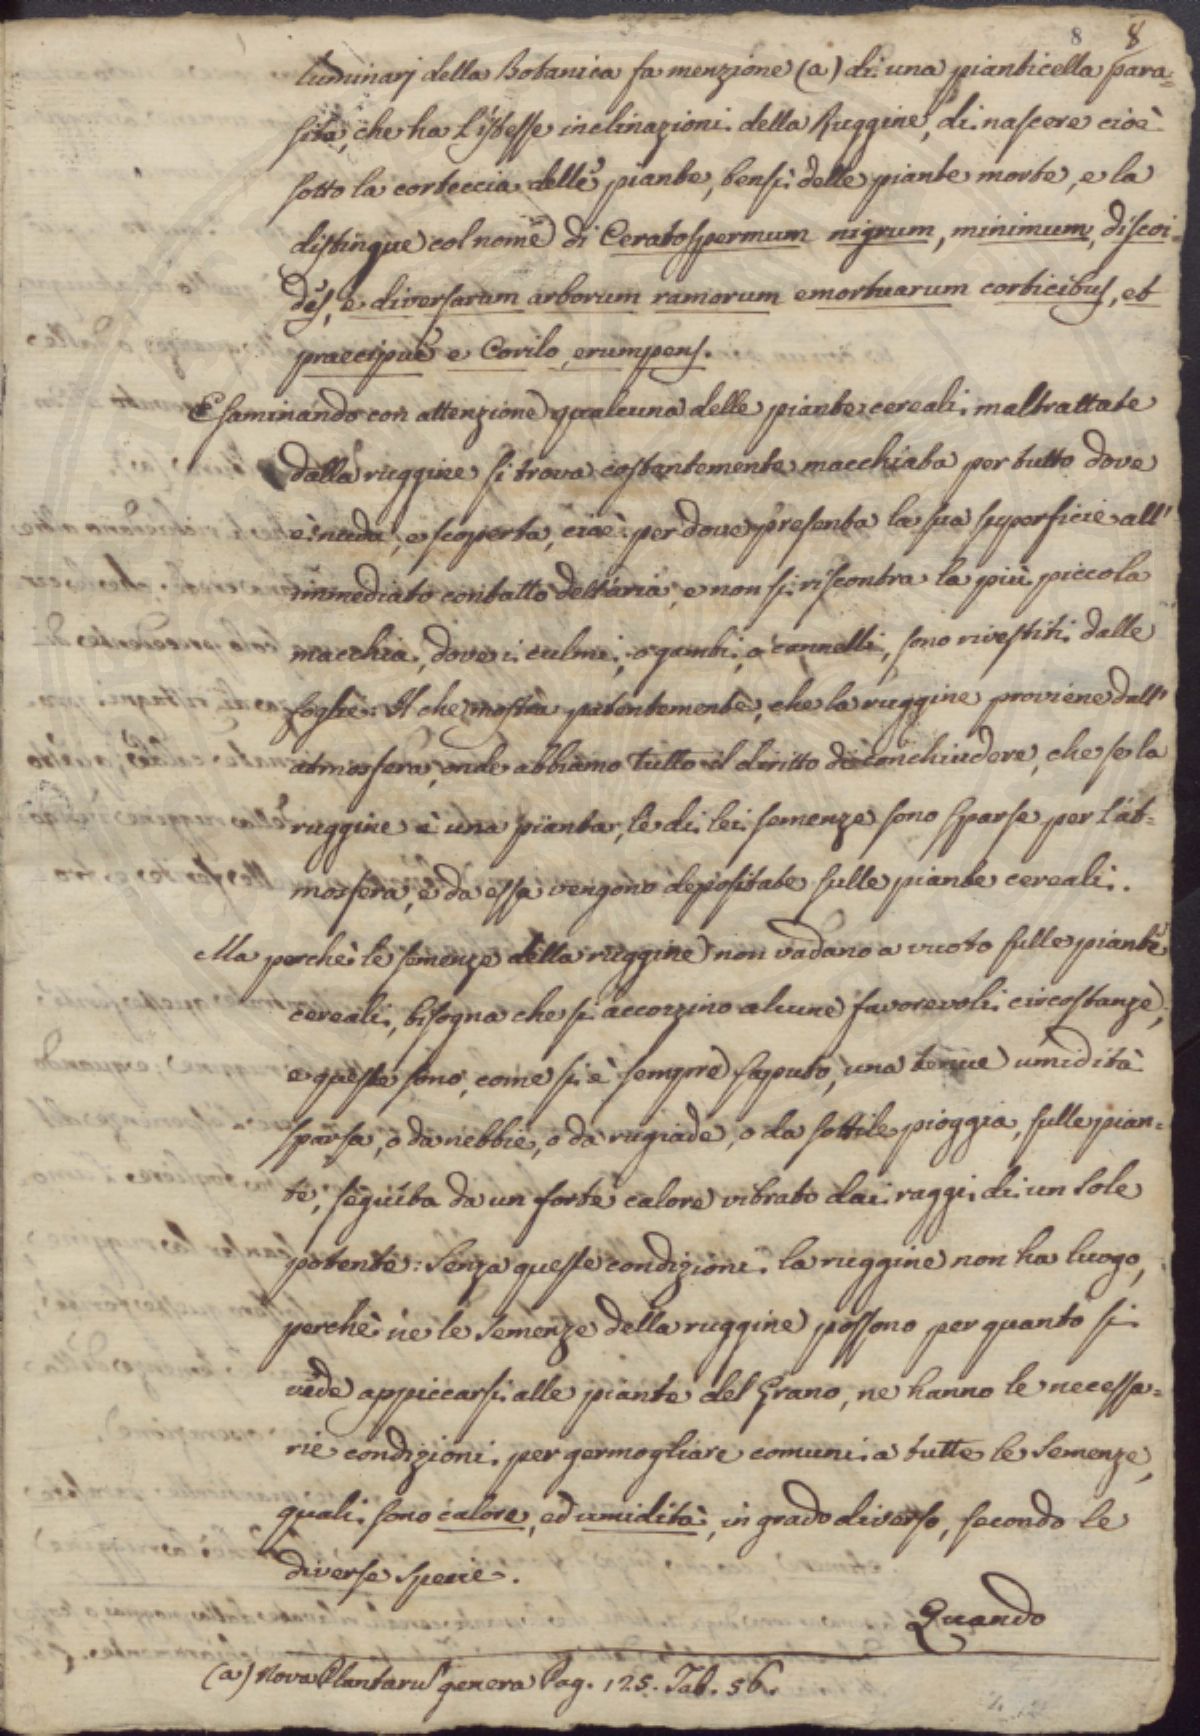 8 8
luminarj della Botanica fa menzione (a) di una pianticella para=
sita, che ha l'istesse inclinazioni della Ruggine, di nascere cioè
sotto la corteccia delle piante, bensì delle piante morte, e la
distingue col nome di Ceratospermum nigrum, minimum, discoi=
des, e diversarum arborum ramorum emortuarum corticibus, et
praecipue e Corilo erumpens.
Esaminando con attenzione qualcuna delle piante cereali maltrattate
dalla ruggine si trova costantemente macchiata per tutto dove
è nuda, e scoperta, cioè per dove presenta la sua superficie all'
immediato contatto dell'aria, e non si riscontra la più piccola
macchia, dove i culmi, o gambi, o cannelli, sono rivestiti dalle
foglie. Il che mostra patentemente, che la ruggine proviene dall'
atmosfera, onde abbiamo tutto il diritto di conchiudere, che se la
ruggine è una pianta, le di lei semenze sono sparse per l'at=
mosfera, e da essa vengono depositate sulle piante cereali.
Ma perchè le semenze della ruggine non vadano a vuoto sulle piante
cereali, bisogna che si accozzino alcune favorevoli circostanze,
e queste sono, come si è sempre saputo, una tenue umidità
sparsa, o da nebbie, o da rugiade, o da sottile pioggia, sulle pian=
te, seguita da un forte calore vibrato dai raggi di un Sole
potente: Senza queste condizioni la ruggine non ha luogo,
perchè ne le Semenze della ruggine possono per quanto si
vede appiccarsi alle piante del Grano, ne hanno le necessa=
rie condizioni per germogliare comuni a tutte le Semenze,
quali sono calore, ed umidità, in grado diverso, secondo le
diverse specie.
Quando
(a) Nova Plantaru genera Pag. 125. Tab. 56.